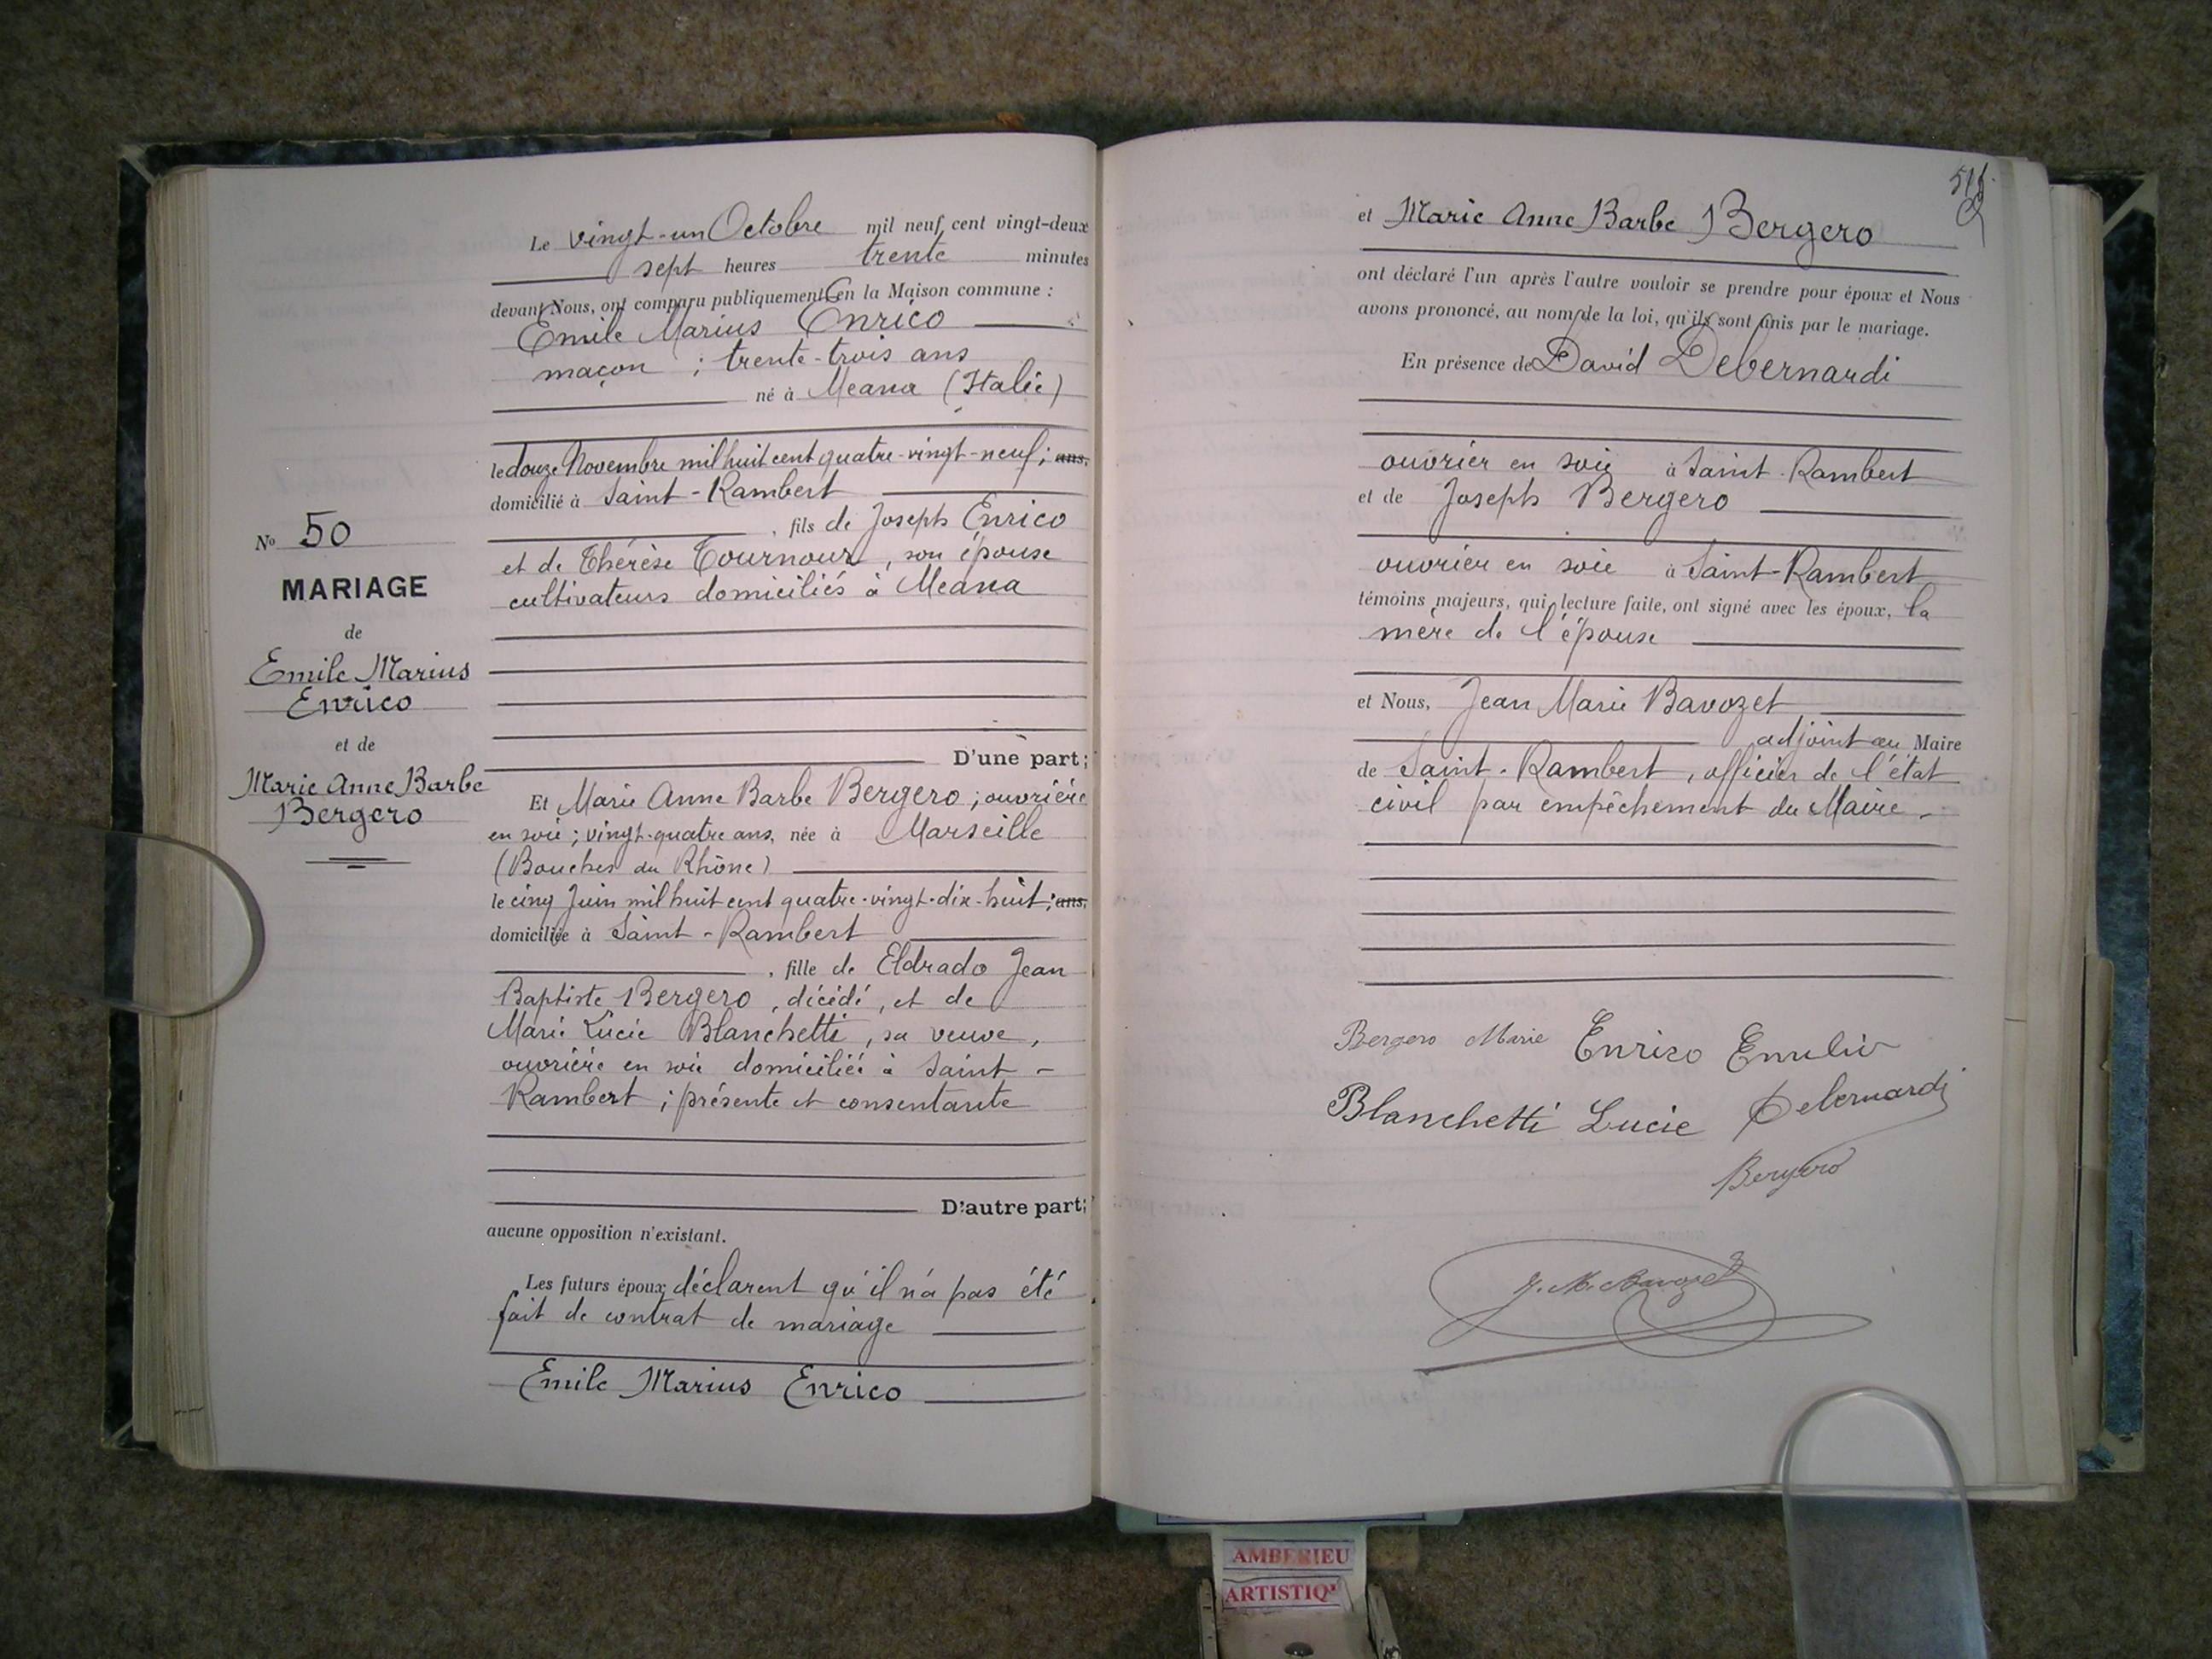 N° 50
MARIAGE
de
Emile Marius
Enrico
et de
Marie Anne Barbe
Bergero
Le vingt-un Octobre mil neuf cent vingt-deux
sept heures trente minutes
devant Nous, ont comparu publiquement en la Maison commune :
Emile Marius Enrico
maçon ; trente-trois ans
né à Meana (Italie)
le douze Novembre mil huit cent quatre-vingt-neuf ; ans,
domicilié à Saint-Rambert
, fils de Joseph Enrico
et de Thérèse Tournour, son épouse
cultivateurs domiciliés à Meana
D'une part;
Et Marie Anne Barbe Bergero ; ouvrière
en soie ; vingt-quatre ans, née à Marseille
(Bouches du Rhône)
le cinq Juin mil huit cent quatre-vingt-dix-huit ; ans,
domiciliée à Saint-Rambert
, fille de Eldrado Jean
Baptiste Bergero, décédé, et de
Marie Lucie Blanchetti, sa veuve,
ouvrière en soie domiciliée à Saint-
Rambert ; présente et consentante
D'autre part;
aucune opposition n'existant.
Les futurs époux déclarent qu'il n'a pas été
fait de contrat de mariage
Emile Marius Enrico
et Marie Anne Barbe Bergero
ont déclaré l'un après l'autre vouloir se prendre pour époux et Nous
avons prononcé, au nom de la loi, qu'ils sont unis par le mariage.
En présence de David Debernardi
ouvrier en soie à Saint-Rambert
et de Joseph Bergero
ouvrier en soie à Saint-Rambert
témoins majeurs, qui, lecture faite, ont signé avec les époux, la
mère de l'épouse
et Nous, Jean Marie Bavozet
adjoint au Maire
de Saint-Rambert, officier de l'état
civil par empêchement du Maire.
Bergero Marie Enrico Emilio
Blanchetti Lucie Debernardi
Bergero
J. M. Bavozet
AMBERIEU
ARTISTIQ